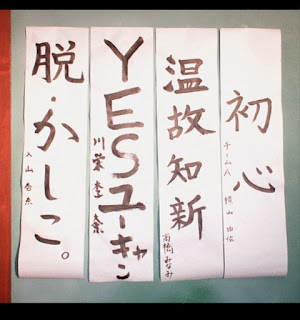 初心
チームA 横山由依
温故知新
高橋みなみ
YESユーキャン
川栄李奈
脱・かしこ。
入山杏奈